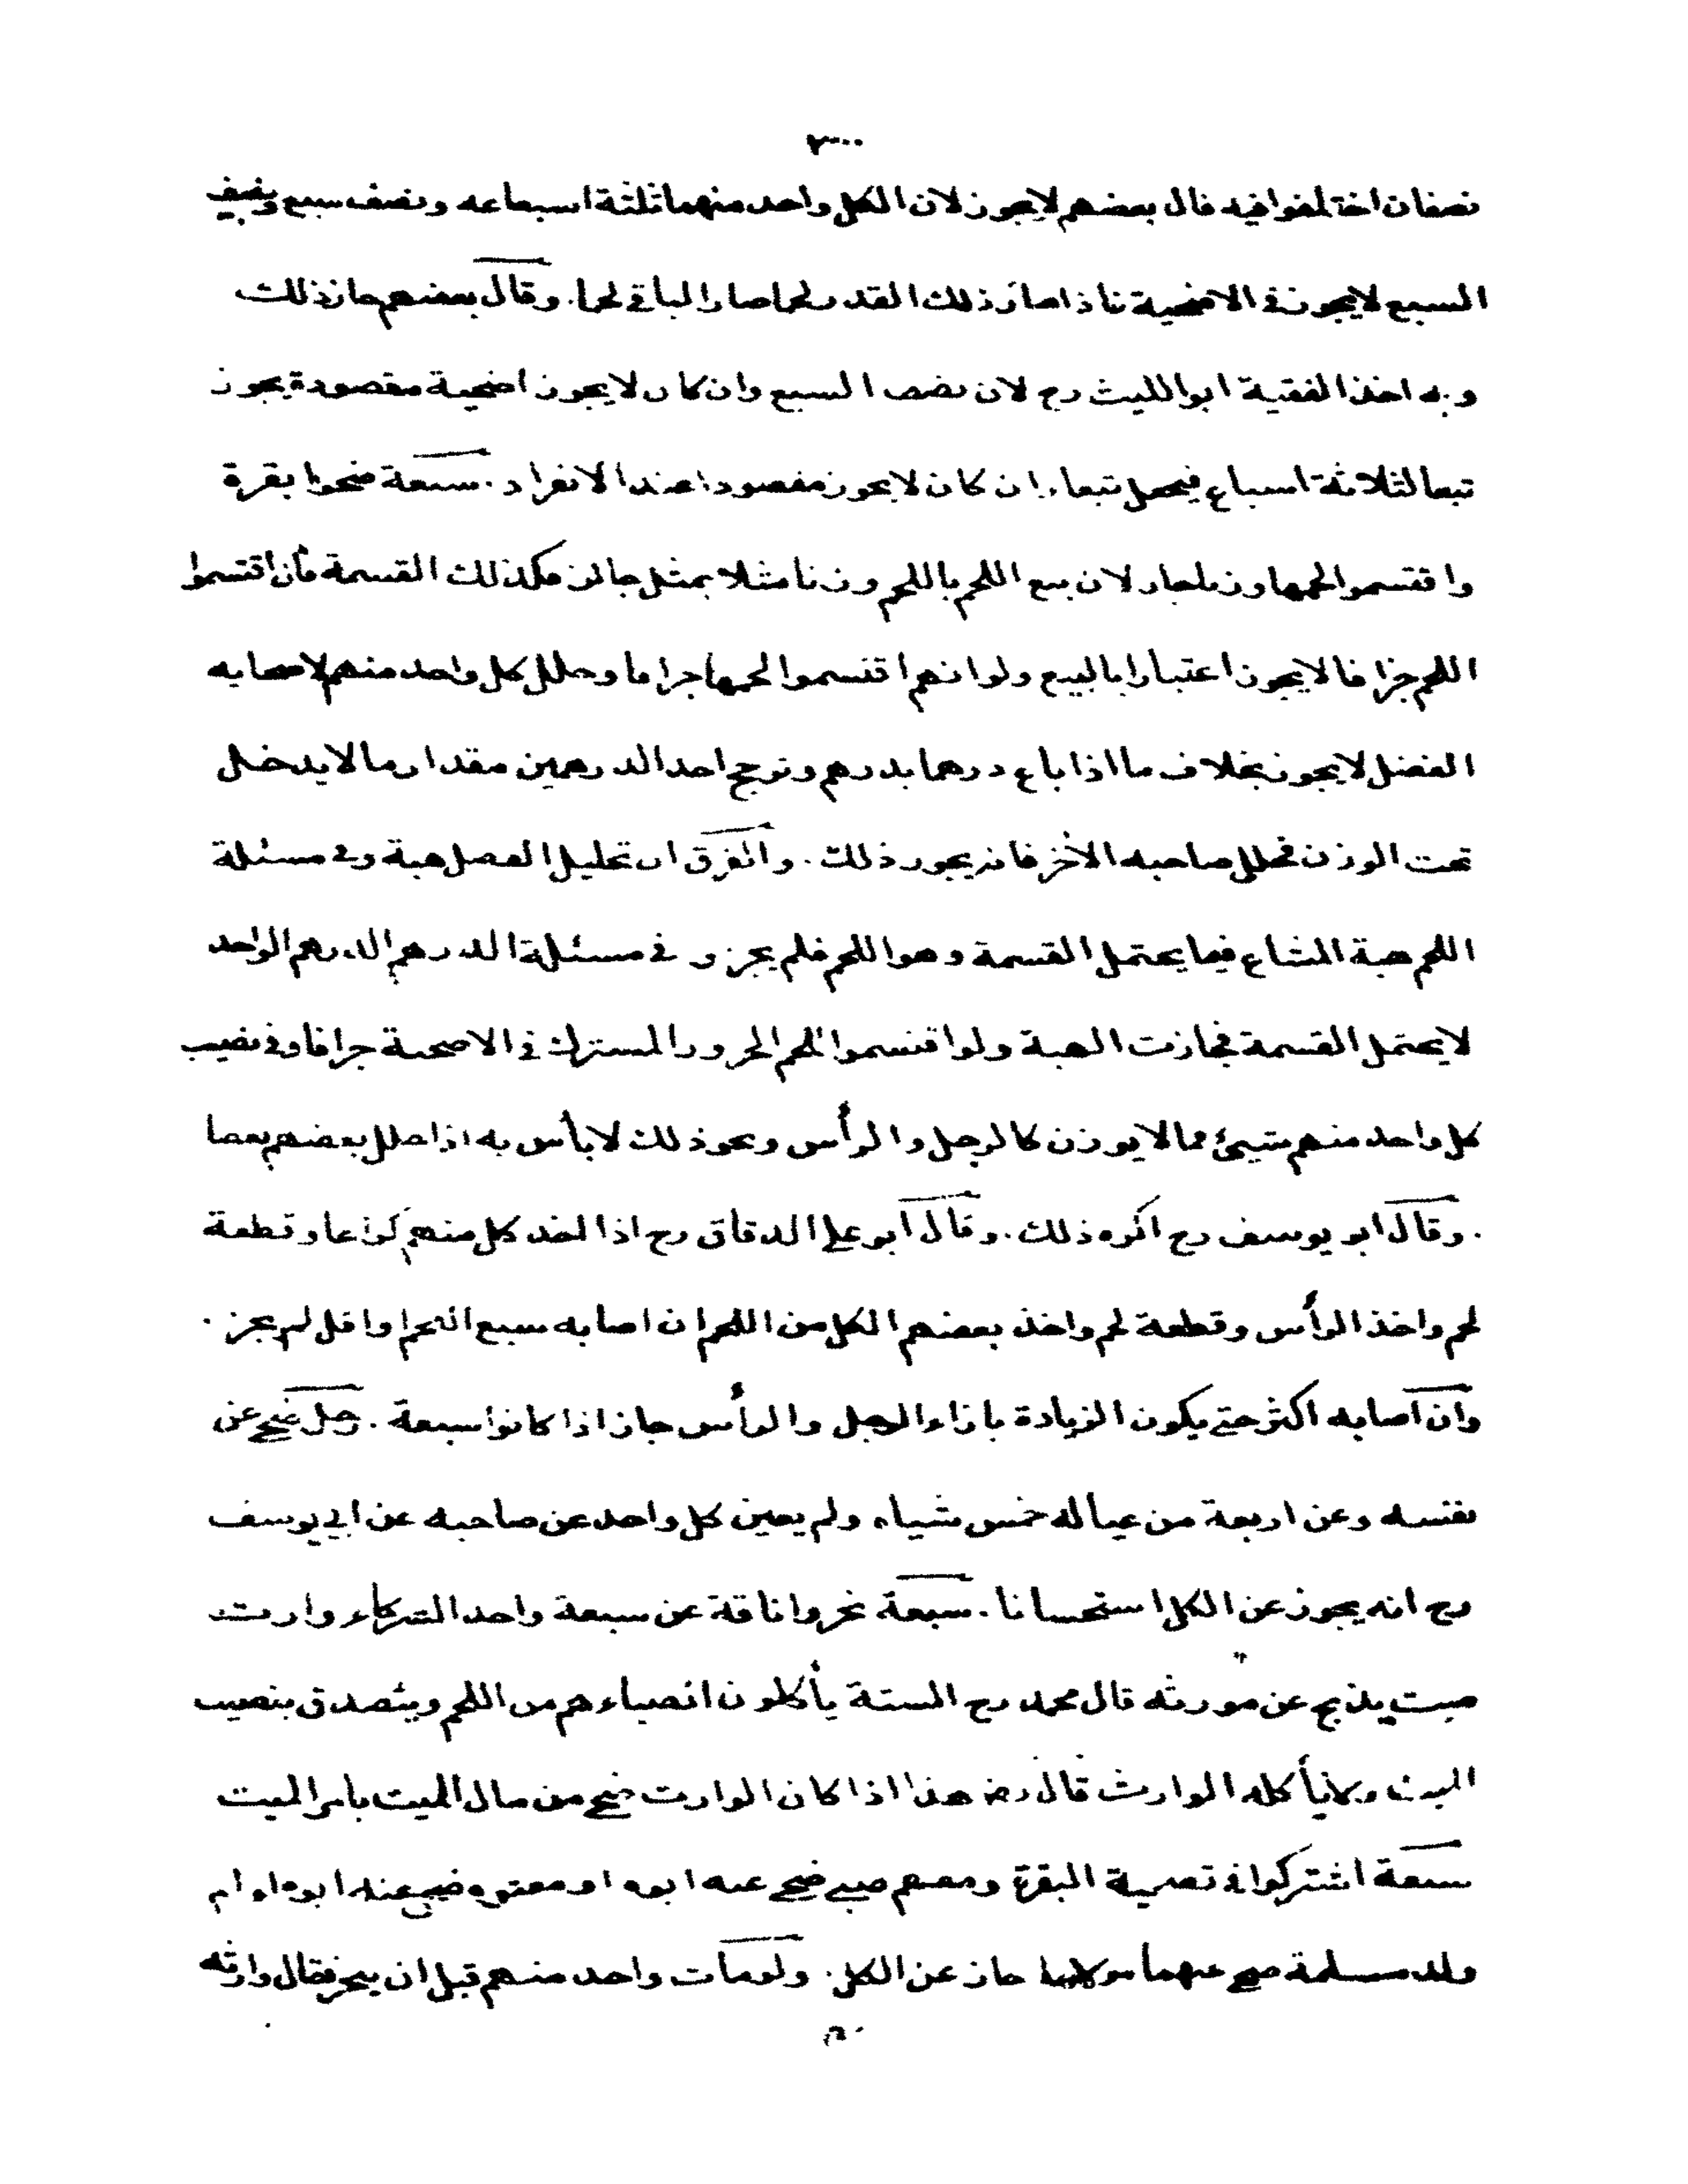 نصفان اختلفوا فيه قال بعضهم لا يجوز لان الكل واحد منهما ثلثة اسبعاعه ونصف سبع ونصف
السبع لا يجوز في الاضحية فاذا صار ذلك القدر لحما صار الباقي لحما. وقال بعضهم جاز ذلك
وبه اخذ الفقية ابوالليث رح لان نصف السبع وان كان لا يجوز اضحية مقصودة يجوز
تبعا لثلاثة اسباع فيجعل تبعا وان كان لا يجوز مقصودا عند الانفراد. سبعة ضحوا بقرة
واقتسموا لحمها وزنا جاز لان بيع اللحم باللحم وزنا مثلا بمثل جائز فكذلك القسمة فأن اقتسموا
اللحم جزافا لا يجوز اعتبارا بالبيع ولو انهم اقتسموا لحمها جزافا وحلل كل واحد منهم لاصحابه
الفضل لا يجوز بخلاف ما اذا باع درهما بدرهم وترجح احد الدرهمين مقدار ما لا يدخل
تحت الوزن فحلل صاحبه الأخر فانه يجوز ذلك. والفرق ان تحليل الفصل هبة وفي مسئلة
اللحم هبة المشاع فيما يحتمل القسمة وهو اللحم فلم يجز و في مسئلة الدرهم الدرهم الواحد
لا يحتمل القسمة فجازت الهبة ولو اقتسموا اللحم الجزور المشترك في الاضحية جزافا وفي نصيب
كل واحد منهم شيئ مما لا يوزن كالرجل والرأس ونحو ذلك لا بأس به اذا حلل بعضهم بعضا
. وقال ابو يوسف رح اكره ذلك. وقال ابو علي الدقاق رح اذا اخذ كل منهم كراعا وقطعة
لحم واخذ الرأس وقطعة لحم واخذ بعضهم الكل من اللحم ان اصابه سبع اللحم او اقل لم يجز.
وان اصابه اكثر حتى يكون الزيادة بازاء الرجل والرأس جاز اذا كانوا سبعة. رجل ضحى عن
نفسه وعن اربعة من عياله خمس شياء ولم يعين كل واحد عن صاحبه عن ابي يوسف
رح انه يجوز عن الكل استحسانا. سبعة نحروا ناقة عن سبعة واحد الشركاء وارث
ميت يذبح عن مورثه قال محمد رح الستة يأكلون انصباءهم من اللحم ويتصدق بنصيب
الميت ولا يأكله الوارث قال رض هذا اذا كان الوارث ضحى من مال الميت بامر الميت
سبعة اشتركوا في تضحية البقرة ومعهم صبي ضحى عنه ابوه او معتوه ضحى عنه ابوه او ام
ولد مسلمة ضحى عنهما مولاهما جاز عن الكل. ولو مات واحد منهم قبل ان ينحر فقال وارثه